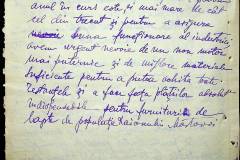 anul în curs este și mai mare de cât
cel din trecut și pentru a asigura
buna funcționare al industriei,
avem urgent nevoie de un nou motor
mai puternic și de mijloace materiale
suficiente pentru a putea achita toate
restanțele și a face față plăților absolut
indispensabile pentru furnitura de
lapte de populația Raionului